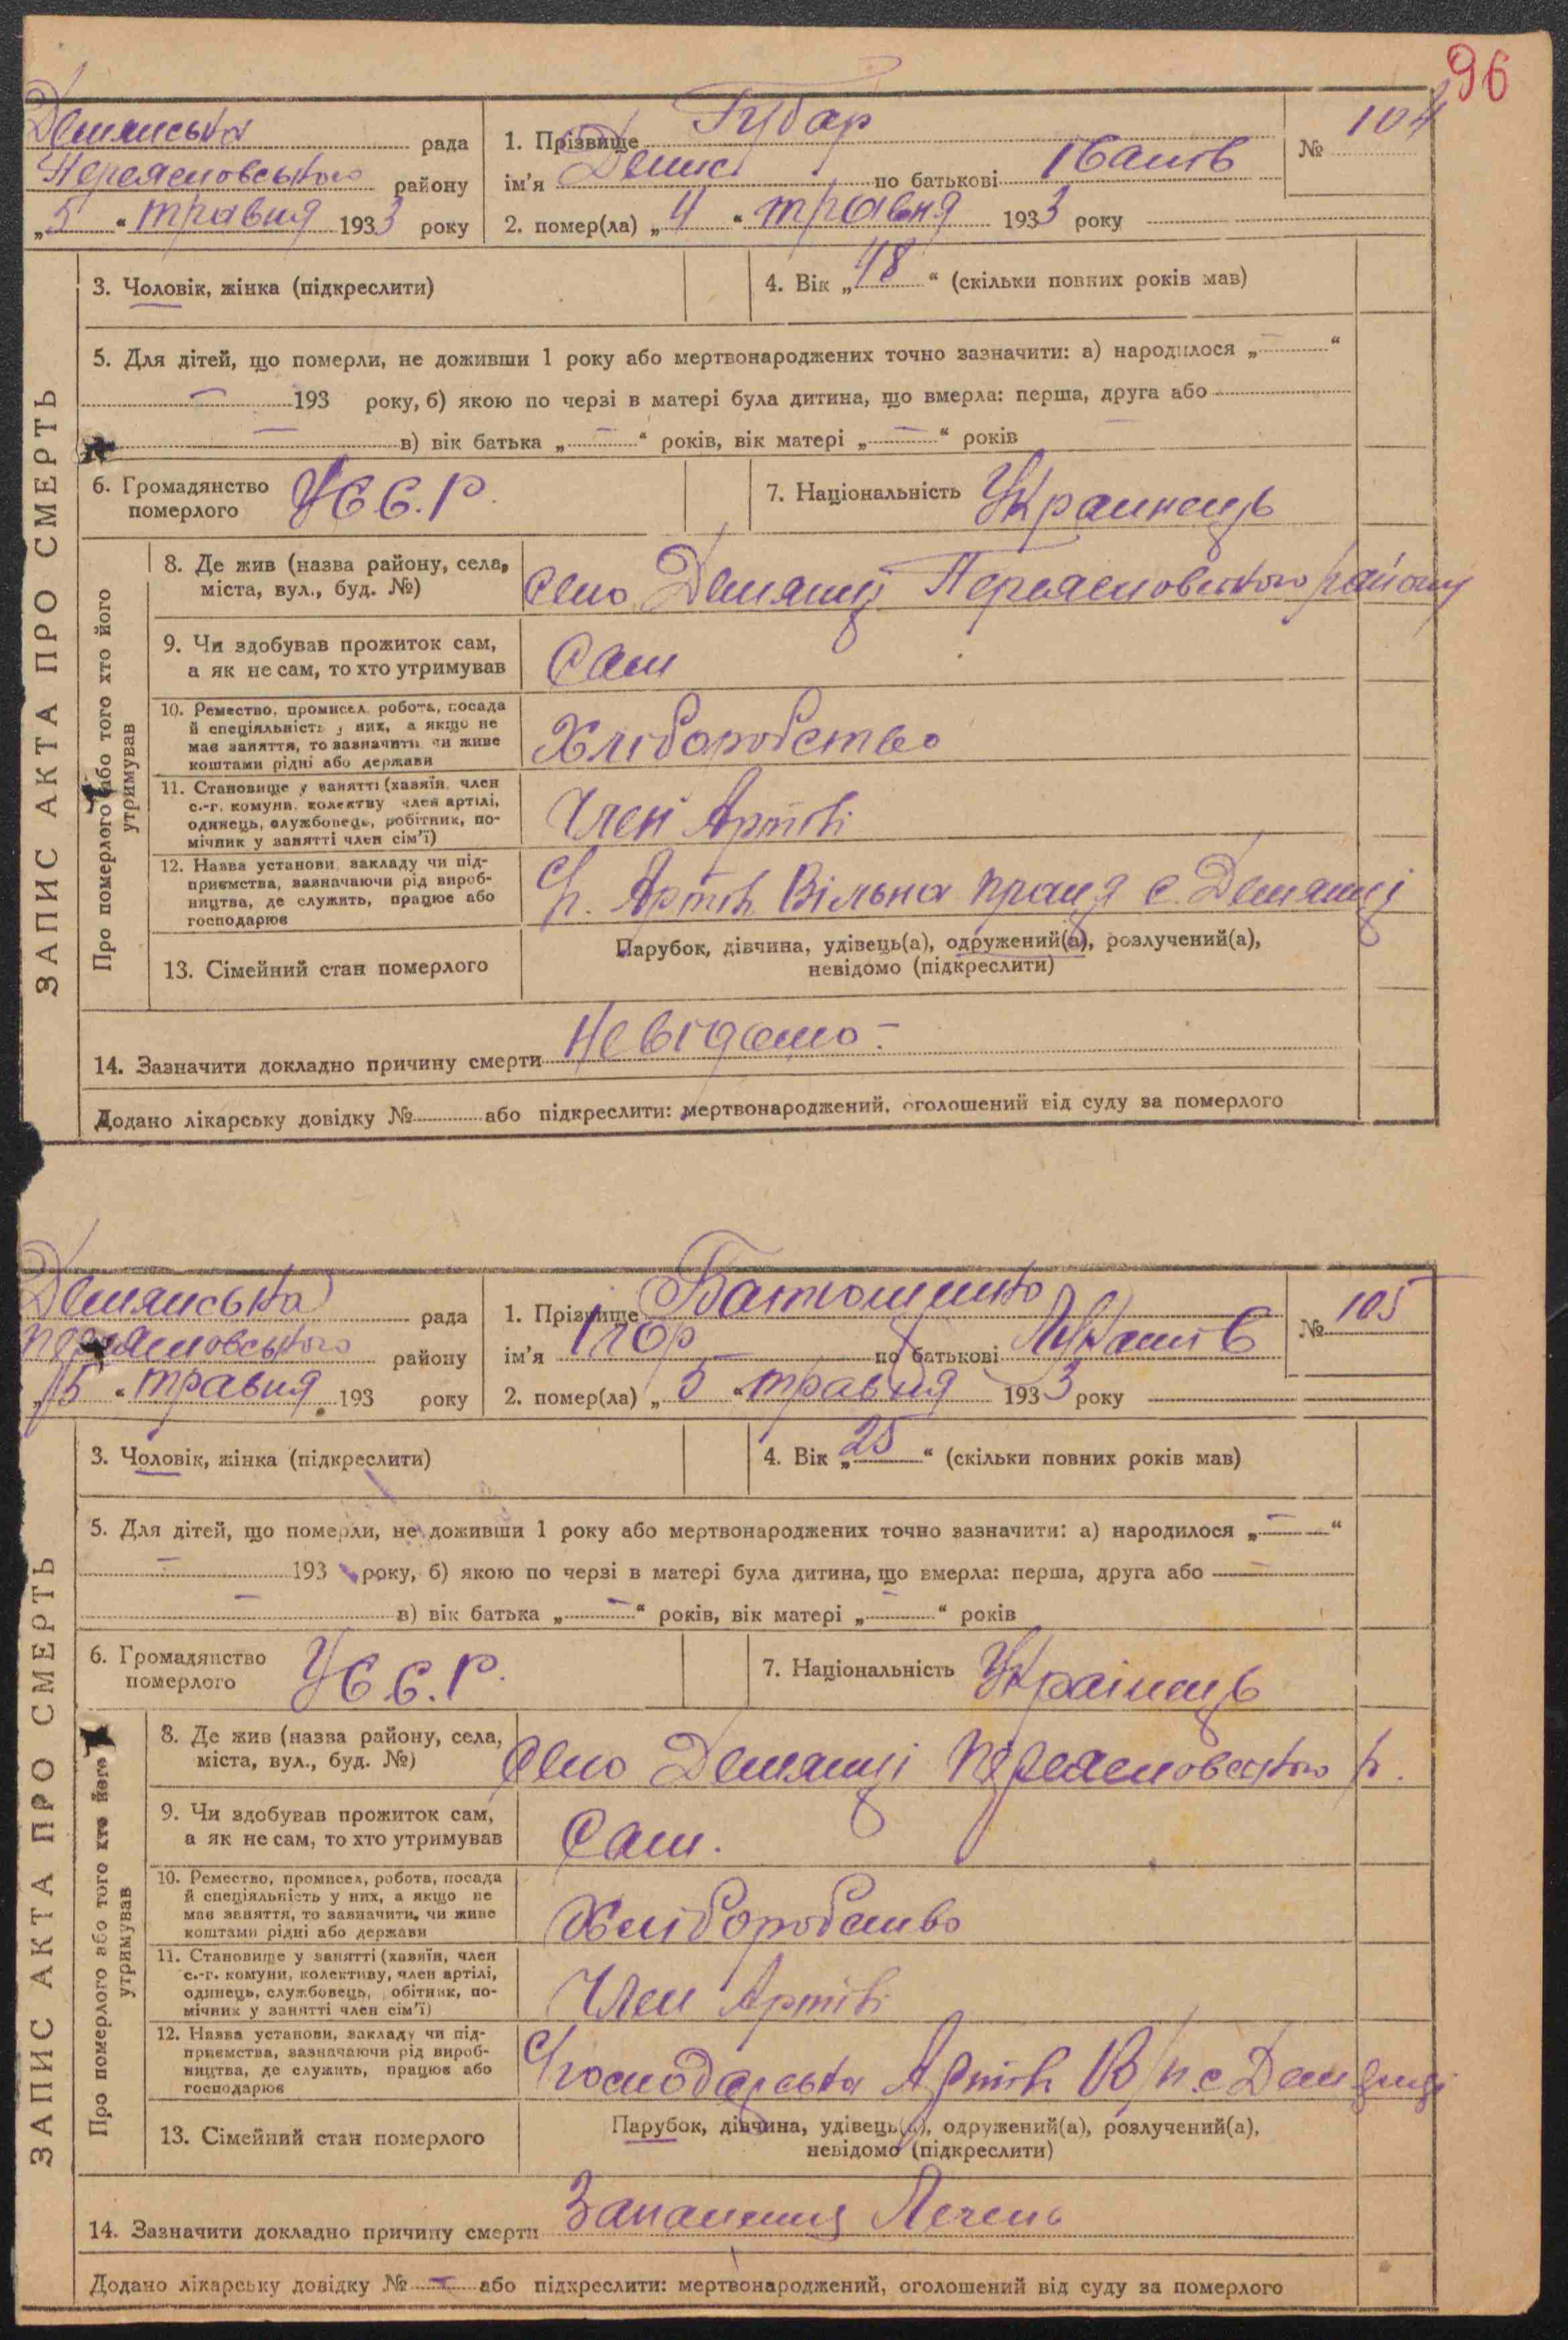 96
Демянська рада
Переяславського району
„5“ травня 1933 року
1. Прізвище Губар
ім'я Денис по батькові Іванів
2. помер(ла) „4“ травня 1933 року
№ 104
ЗАПИС АКТА ПРО СМЕРТЬ
3. Чоловік, жінка (підкреслити)
4. Вік „48“ (скільки повних років мав)
5. Для дітей, що померли, не доживши 1 року або мертвонароджених точно зазначити: а) народилося „—“
— 193 року, б) якою по черзі в матері була дитина, що вмерла: перша, друга або
— в) вік батька „—“ років, вік матері „—“ років
6. Громадянство
померлого
УССР.
7. Національність Украинець
Про померлого або того хто його
утримував
8. Де жив (назва району, села,
міста, вул., буд. №)
Село Демянці Переясловського району
9. Чи здобував прожиток сам,
а як не сам, то хто утримував
Сам
10. Ремество, промисел, робота, посада
й спеціяльність у них, а якщо не
має заняття, то зазначити чи живе
коштами рідні або держави
Хліборобство
11. Становище у занятті (хазяїн, член
с.-г. комуни, колективу член артілі,
одинець, службовець, робітник, по-
мічник у занятті член сім'ї)
Член Артілі
12. Назва установи, закладу чи під-
приємства, зазначаючи рід вироб-
ництва, де служить, працює або
господарює
Артіль Вільна праця с. Демянці
13. Сімейний стан померлого
Парубок, дівчина, удівець(а), одружений(а), розлучений(а),
невідомо (підкреслити)
14. Зазначити докладно причину смерти Невідомо –
Додано лікарську довідку № або підкреслити: мертвонароджений, оголошений від суду за померлого
Демянська рада
Переясловського району
„5“ травня 193 року
1. Прізвище
ім'я по батькові Лукашів
2. помер(ла) „5“ травня 1933 року
№ 105
ЗАПИС АКТА ПРО СМЕРТЬ
3. Чоловік, жінка (підкреслити)
4. Вік „25“ (скільки повних років мав)
5. Для дітей, що померли, не доживши 1 року або мертвонароджених точно зазначити: а) народилося „—“
— 193 року, б) якою по черзі в матері була дитина, що вмерла: перша, друга або —
— в) вік батька „—“ років, вік матері „—“ років
6. Громадянство
померлого
УССР.
7. Національність Українець
Про померлого або того хто його
утримував
8. Де жив (назва району, села,
міста, вул., буд. №)
Село Демянці Переясловського р.
9. Чи здобував прожиток сам,
а як не сам, то хто утримував
Сам.
10. Ремество, промисел, робота, посада
й спеціяльність у них, а якщо не
має заняття, то зазначити, чи живе
коштами рідні або держави
Хліборобство
11. Становище у занятті (хазяїн, член
с.-г. комуни, колективу, член артілі,
одинець, службовець, робітник, по-
мічник у занятті член сім'ї)
Член Артілі
12. Назва установи, закладу чи під-
приємства, зазначаючи рід вироб-
ництва, де служить, працює або
господарює
С/господарська Артіль В/п. с Демянці
13. Сімейний стан померлого
Парубок, дівчина, удівець(а), одружений(а), розлучений(а),
невідомо (підкреслити)
14. Зазначити докладно причину смерти Запалення Лечень
Додано лікарську довідку № — або підкреслити: мертвонароджений, оголошений від суду за померлого